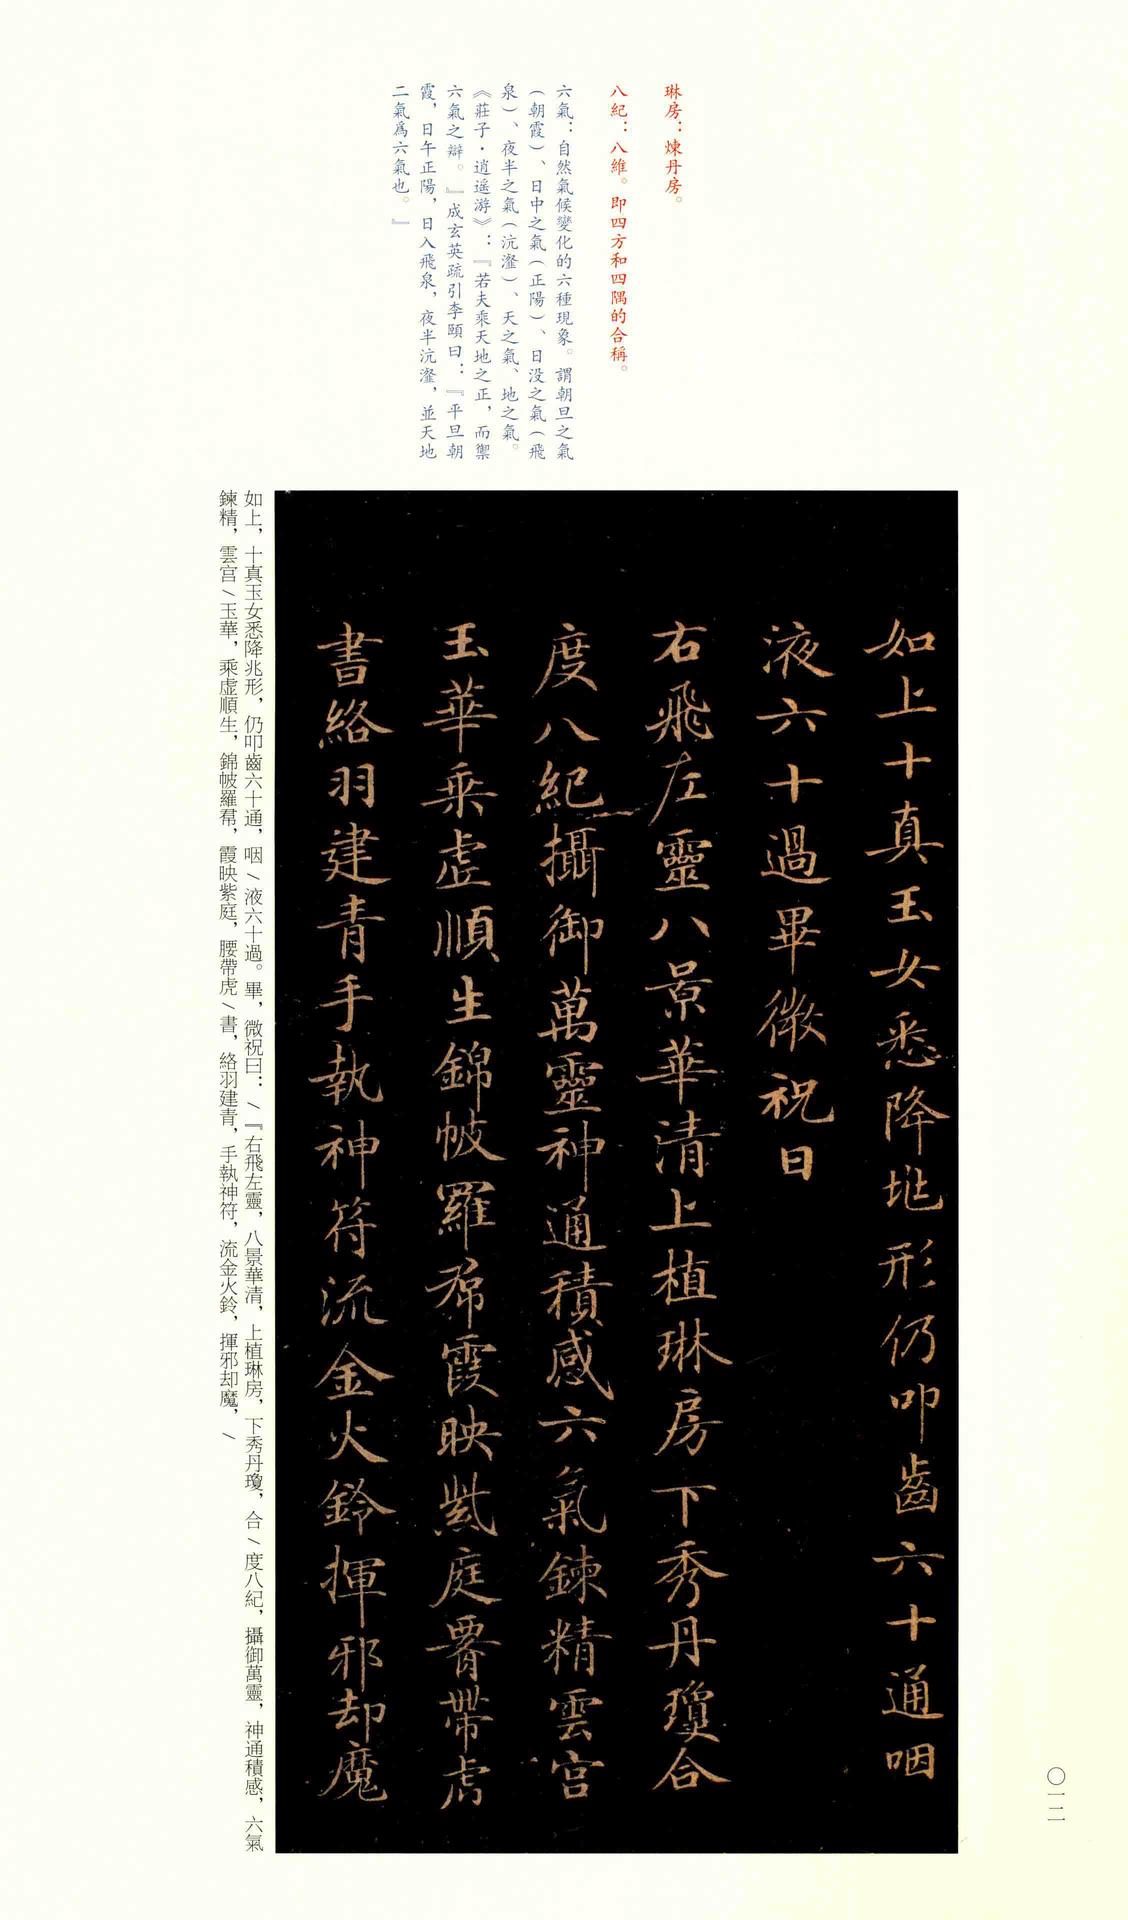 琳房：煉丹房。
八紀：八維。即四方和四隅的合稱。
六氣：自然氣候變化的六種現象。謂朝旦之氣
（朝霞）、日中之氣（正陽）、日没之氣（飛
泉）、夜半之氣（沆瀣）、天之氣、地之氣。
《莊子·逍遥游》：『若夫乘天地之正，而禦
六氣之辯。』成玄英疏引李頤曰：『平旦朝
霞，日午正陽，日入飛泉，夜半沆瀣，並天地
二氣爲六氣也。』
如上十真玉女悉降地形仍叩齒六十通咽
液六十過畢微祝曰
右飛左靈八景華清上植琳房下秀丹瓊合
度八紀攝御萬靈神通積感六氣鍊精雲宫
玉華乘虚順生錦帔羅帬霞映紫庭腰帶虎
書絡羽建青手執神符流金火鈴揮邪却魔
如上，十真玉女悉降兆形，仍叩齒六十通，咽／液六十過。畢，微祝曰：／『右飛左靈，八景華清，上植琳房，下秀丹瓊，合／度八紀，攝御萬靈，神通積感，六氣
鍊精，雲宫／玉華，乘虚順生，錦帔羅帬，霞映紫庭，腰帶虎／書，絡羽建青，手執神符，流金火鈴，揮邪却魔，／
〇一二